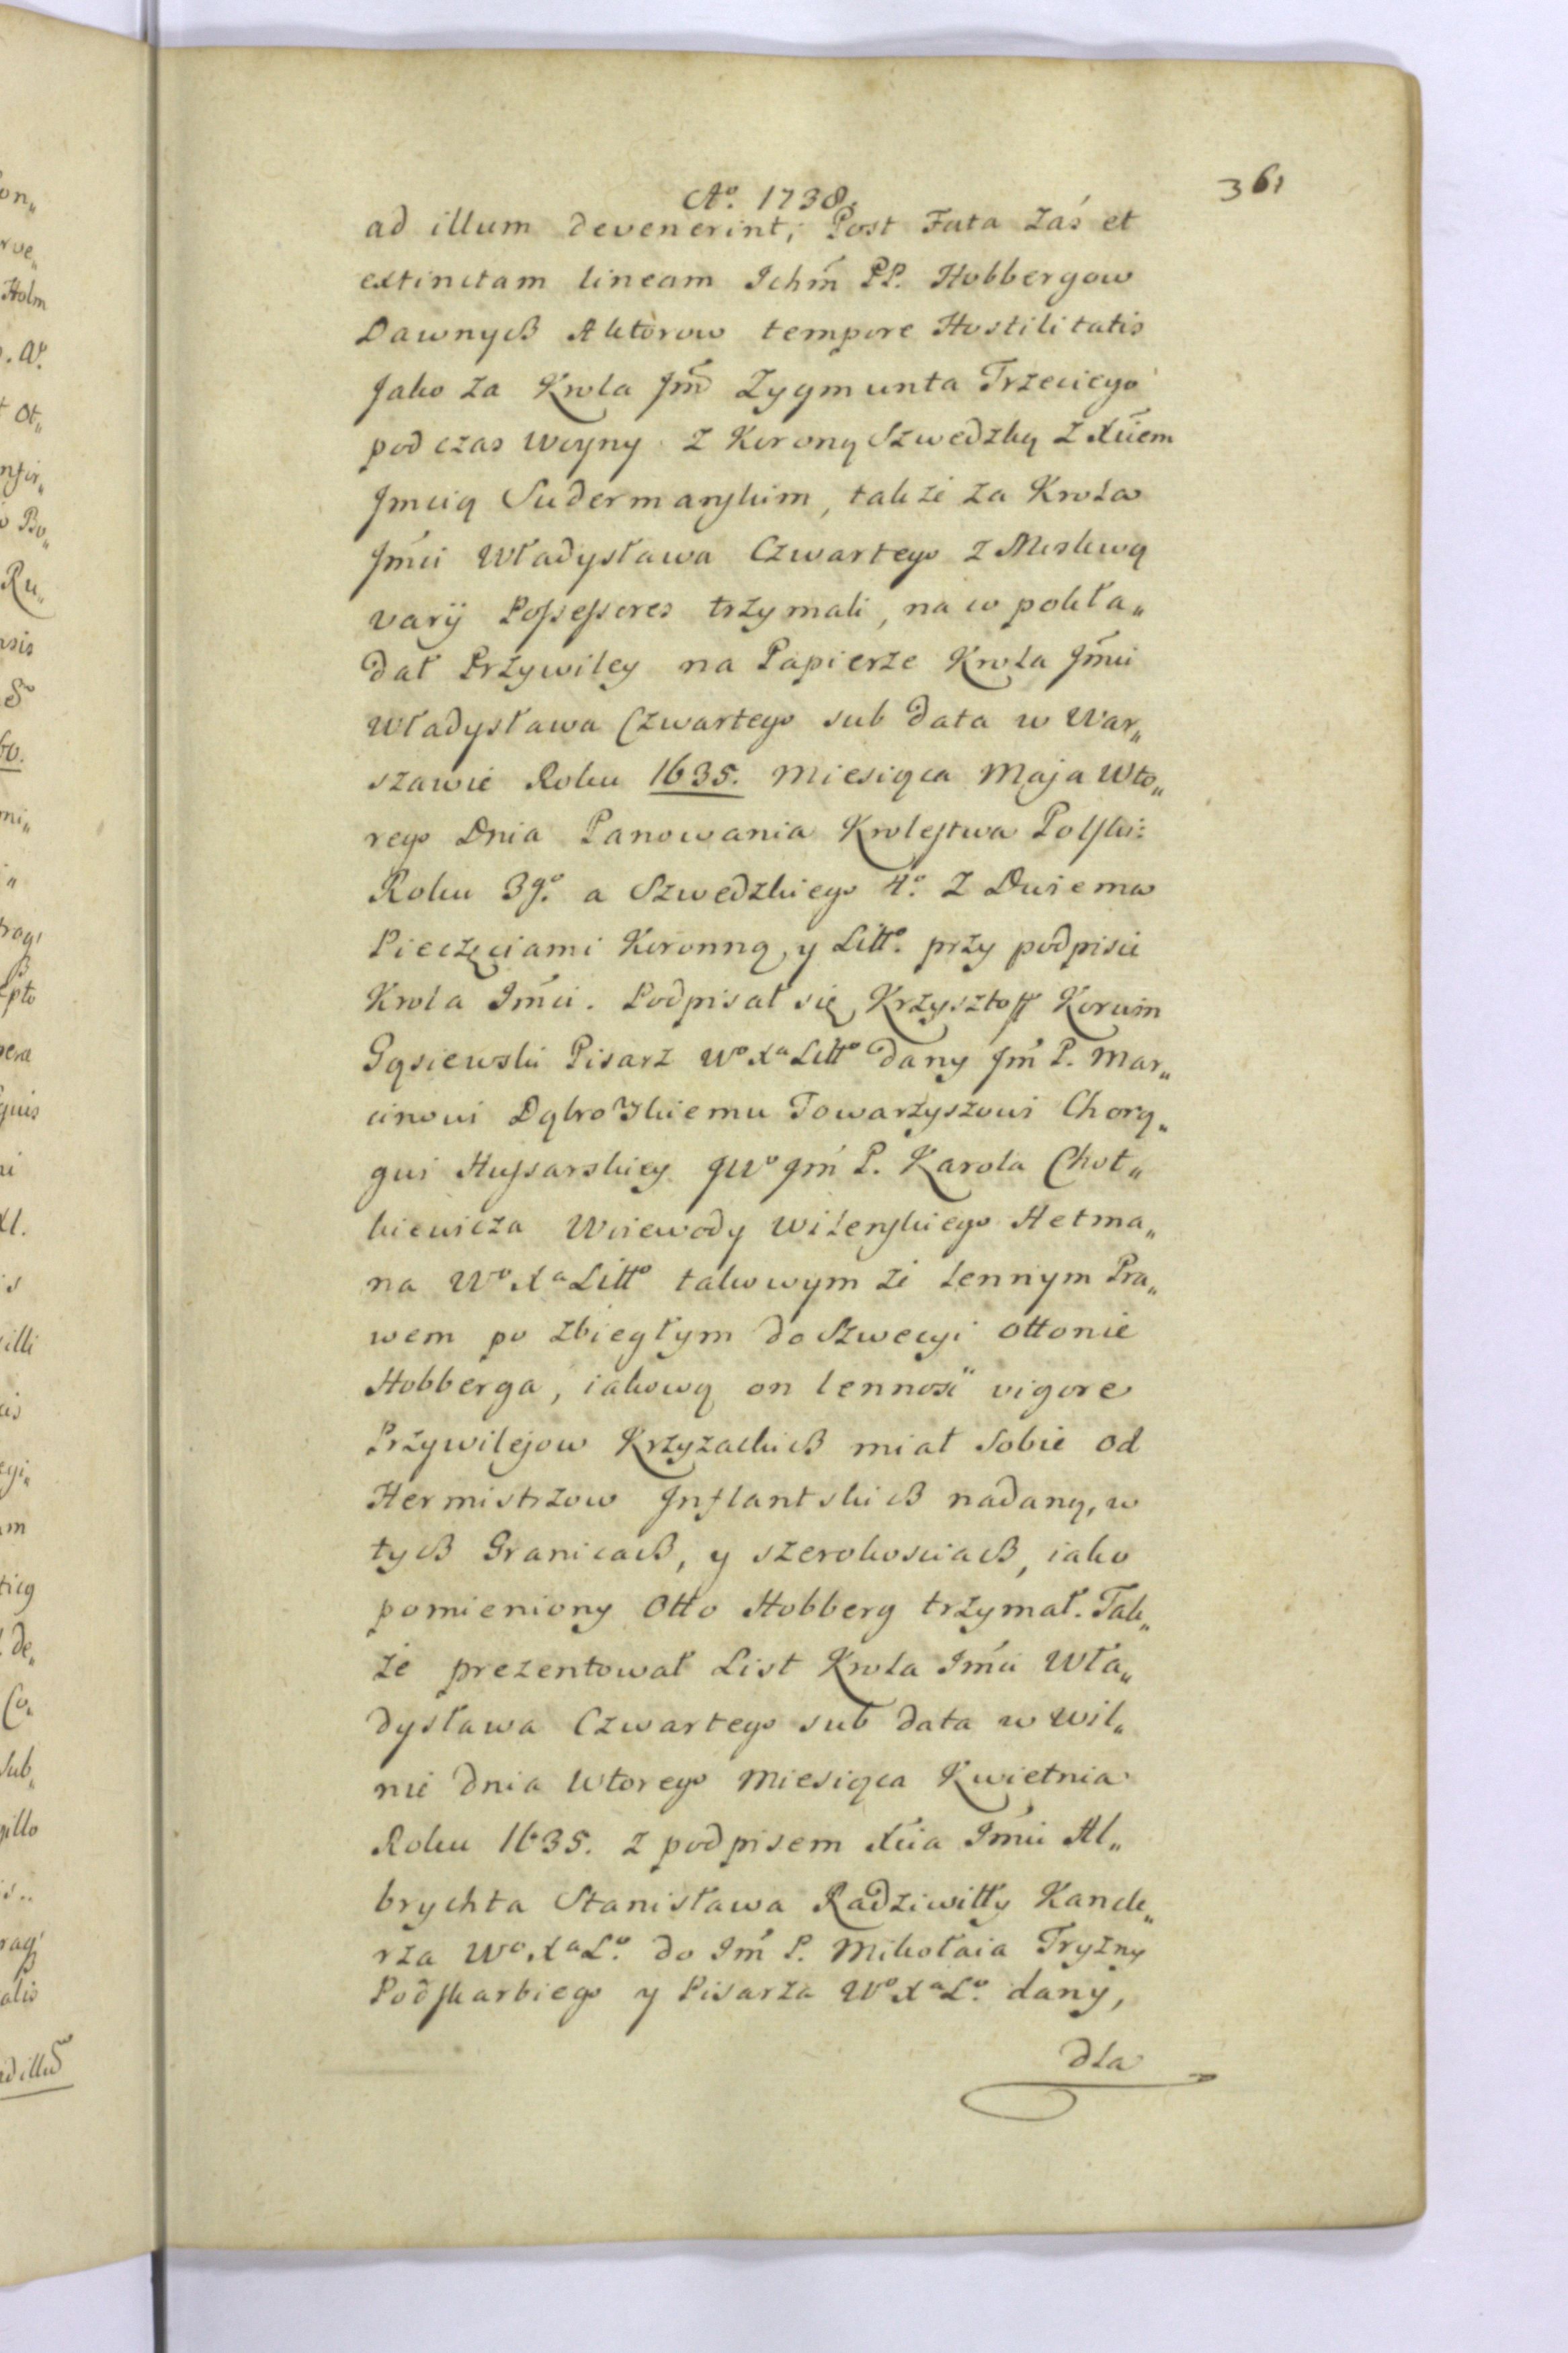 Aº. 1738.
361
ad illum devenerint, Post Fata zaś et
extinctam lineam Ichm̃ PP. Hobbergow
Dawnych Aktorow tempore Hostilitatis
Jako za Krola Jm̃ Zygmunta Trzeciego
podczas Woyny z Koroną Szwedzką z Xciem
Jmcią Sudermanskim, także za Krola
Jmci Władysława Czwartego z Moskwą
varij Possessores trzymali, na co pokła„
dał Przywiley na Papierze Krola Jmci
Władysława Czwartego sub data w War„
szawie Roku 1635. Miesiąca Maja Wto„
rego Dnia Panowania Krolestwa Polski:
Roku 3go. a Szwedzkiego 4º. z Dwiema
Pieczęciami Koronną y Littº. przy podpisie
Krola Jmci. Podpisał się Krzysztoff Korwin
Gąsiewski Pisarz Wº Xª Littº dany Jm̃ P. Mar„
cinowi Dąbrowskiemu Towarzyszowi Chorą„
gwi Hussarskiey JWº Jm̃ P. Karola Chot„
kiewicza Woiewody Wilenskiego Hetma„
na Wº Xª Littº takowym że lennym Pra„
wem po zbiegłym do Szwecyi Ottonie
Hobberga, iakową on lennosć vigore
Przywilejow Krzyzackich miał sobie od
Hermistrzow Inflantskich nadaną, w
tych Granicach, y szerokosciach, iako
pomieniony Otto Hobberg trzymał. Tak„
że prezentował List Krola Jmci Wła„
dysława Czwartego sub data w Wil„
nie dnia Wtorego Miesiąca Kwietnia
Roku 1635. z podpisem Xcia Jmci Al„
brychta Stanisława Radziwiłły Kancle„
rza Wº Xª Lº. do Jm̃ P. Mikołaia Tryzny
Podskarbiego y Pisarza Wº Xª Lº. dany,
dla